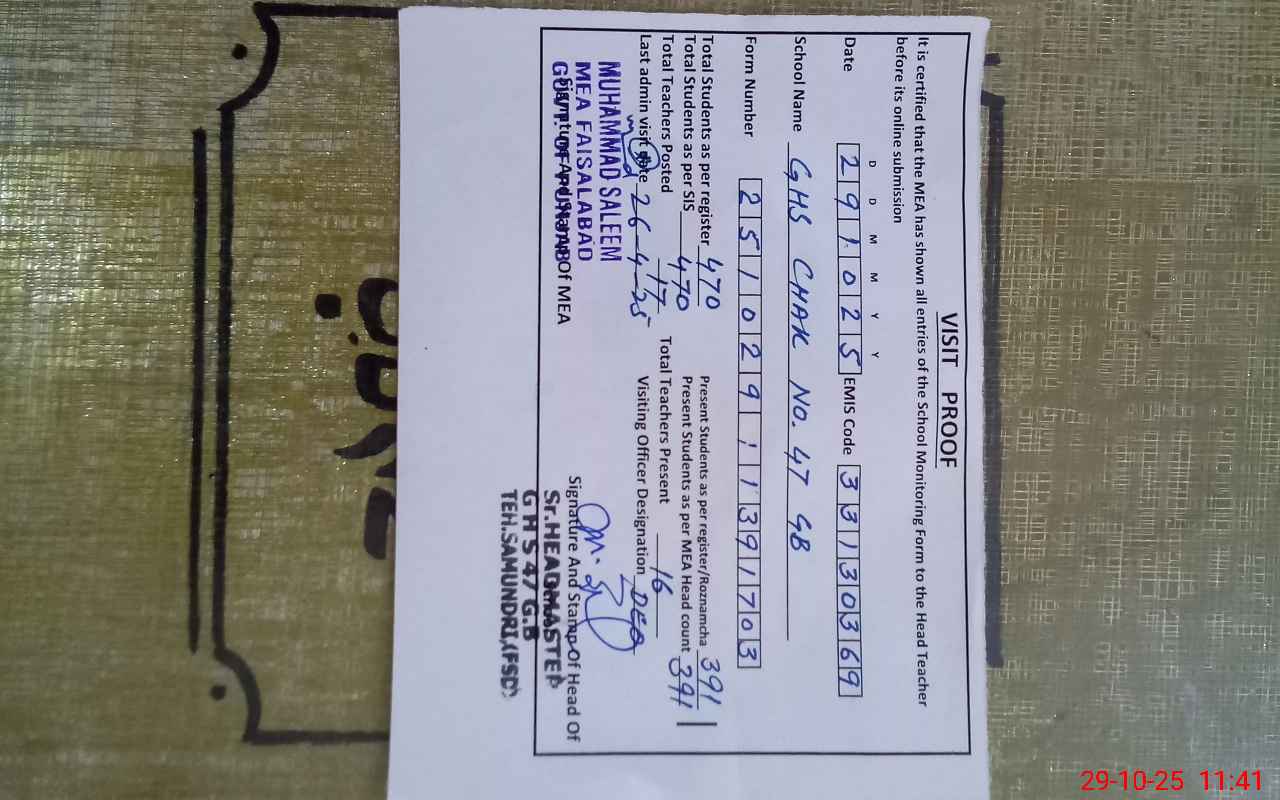 VISIT PROOF
It is certified that the MEA has shown all entries of the School Monitoring Form to the Head Teacher
before its online submission
D D M M Y Y
Date 2 9 1 0 2 5 EMIS Code 3 3 1 3 0 3 6 9
School Name GHS CHAK NO. 47 GB
Form Number 2 5 1 0 2 9 1 1 3 9 1 7 0 3
Total Students as per register 470 Present Students as per register/Roznamcha 391
Total Students as per SIS 470 Present Students as per MEA Head count 391
Total Teachers Posted 17 Total Teachers Present 16
Last admin visit date 26-4-25 Visiting Officer Designation DEO
MUHAMMAD SALEEM
MEA FAISALABAD
GOVT. OF PUNJAB
Signature And Stamp Of MEA
Signature And Stamp Of Head Of
School
Sr.HEADMASTER
G H S 47 G.B
TEH.SAMUNDRI,(FSD)
29-10-25 11:41